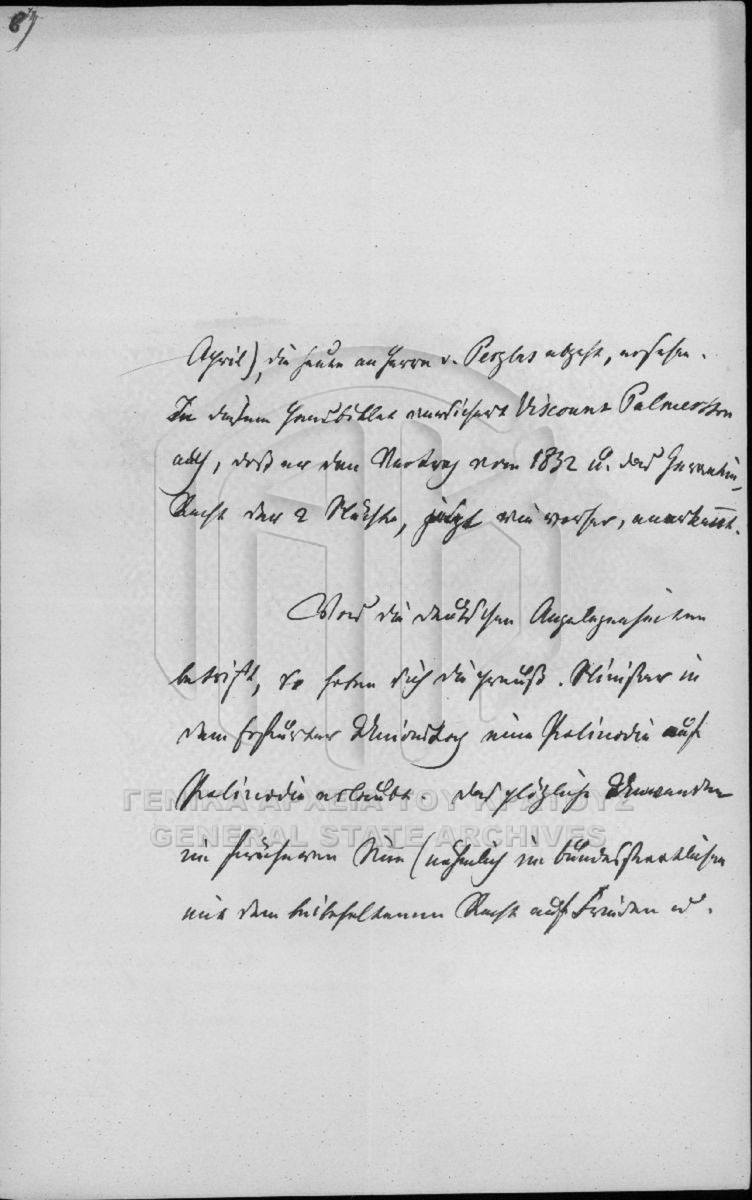 6
April), die heute an Herrn v. Perglas abgeht, ersehen.
In diesem Hausbillet versichert Viscount Palmerston
auch, daß er den Vertrag vom 1832 u. das Garantie-
Recht der 2 Mächte, jetzt wie vorher, anerkennt.
Was die deutschen Angelegenheiten
betrifft, so haben sich die preuß. Minister in
dem Erfurter Unionstag eine Palinodie auf
Palinodie erlaubt das plötzliche Umwenden
im früheren Sinn (nähmlich im bundesstaatlichen
mit dem beibehaltenen Recht auf Frieden u.
ΓΕΝΙΚΑ ΑΡΧΕΙΑ ΤΟΥ ΚΡΑΤΟΥΣ
GENERAL STATE ARCHIVES